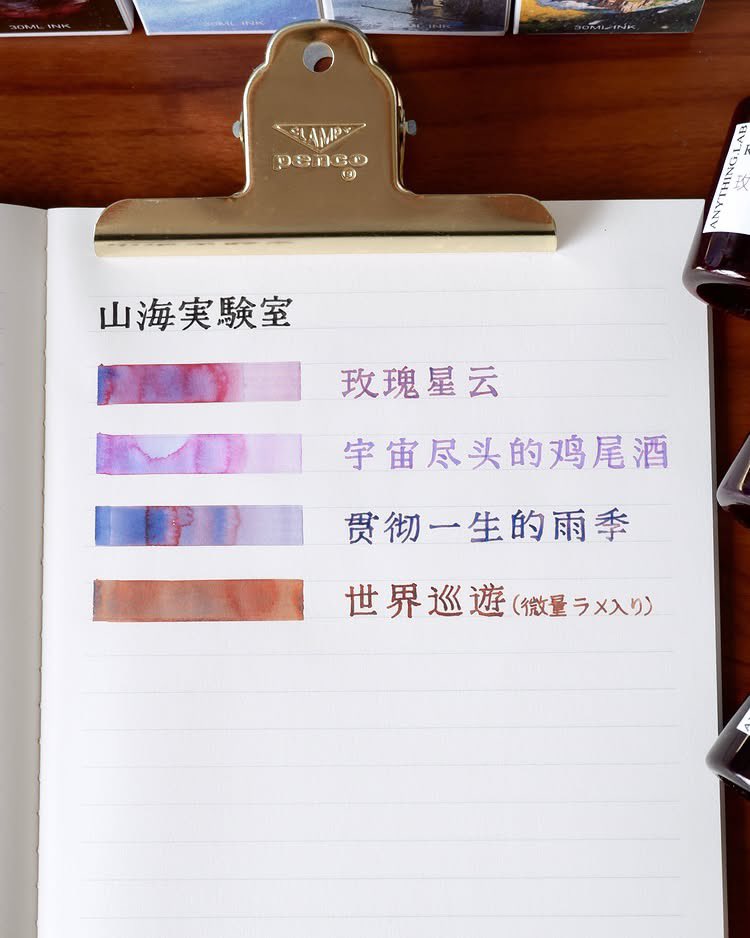 30ML INK
30ML INK
30ML INK
30ML INK
CLAMPY
penco
ANYTHING.LAB
玫
山海実験室
玫瑰星云
宇宙尽头的鸡尾酒
贯彻一生的雨季
世界巡遊(微量ラメ入り)